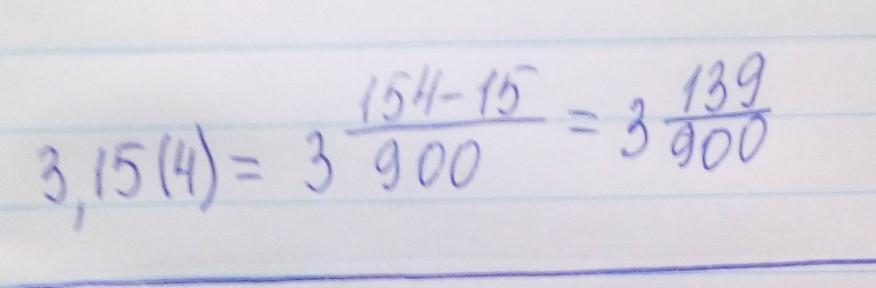 3,15(4) = 3 154-15/900 = 3 139/900